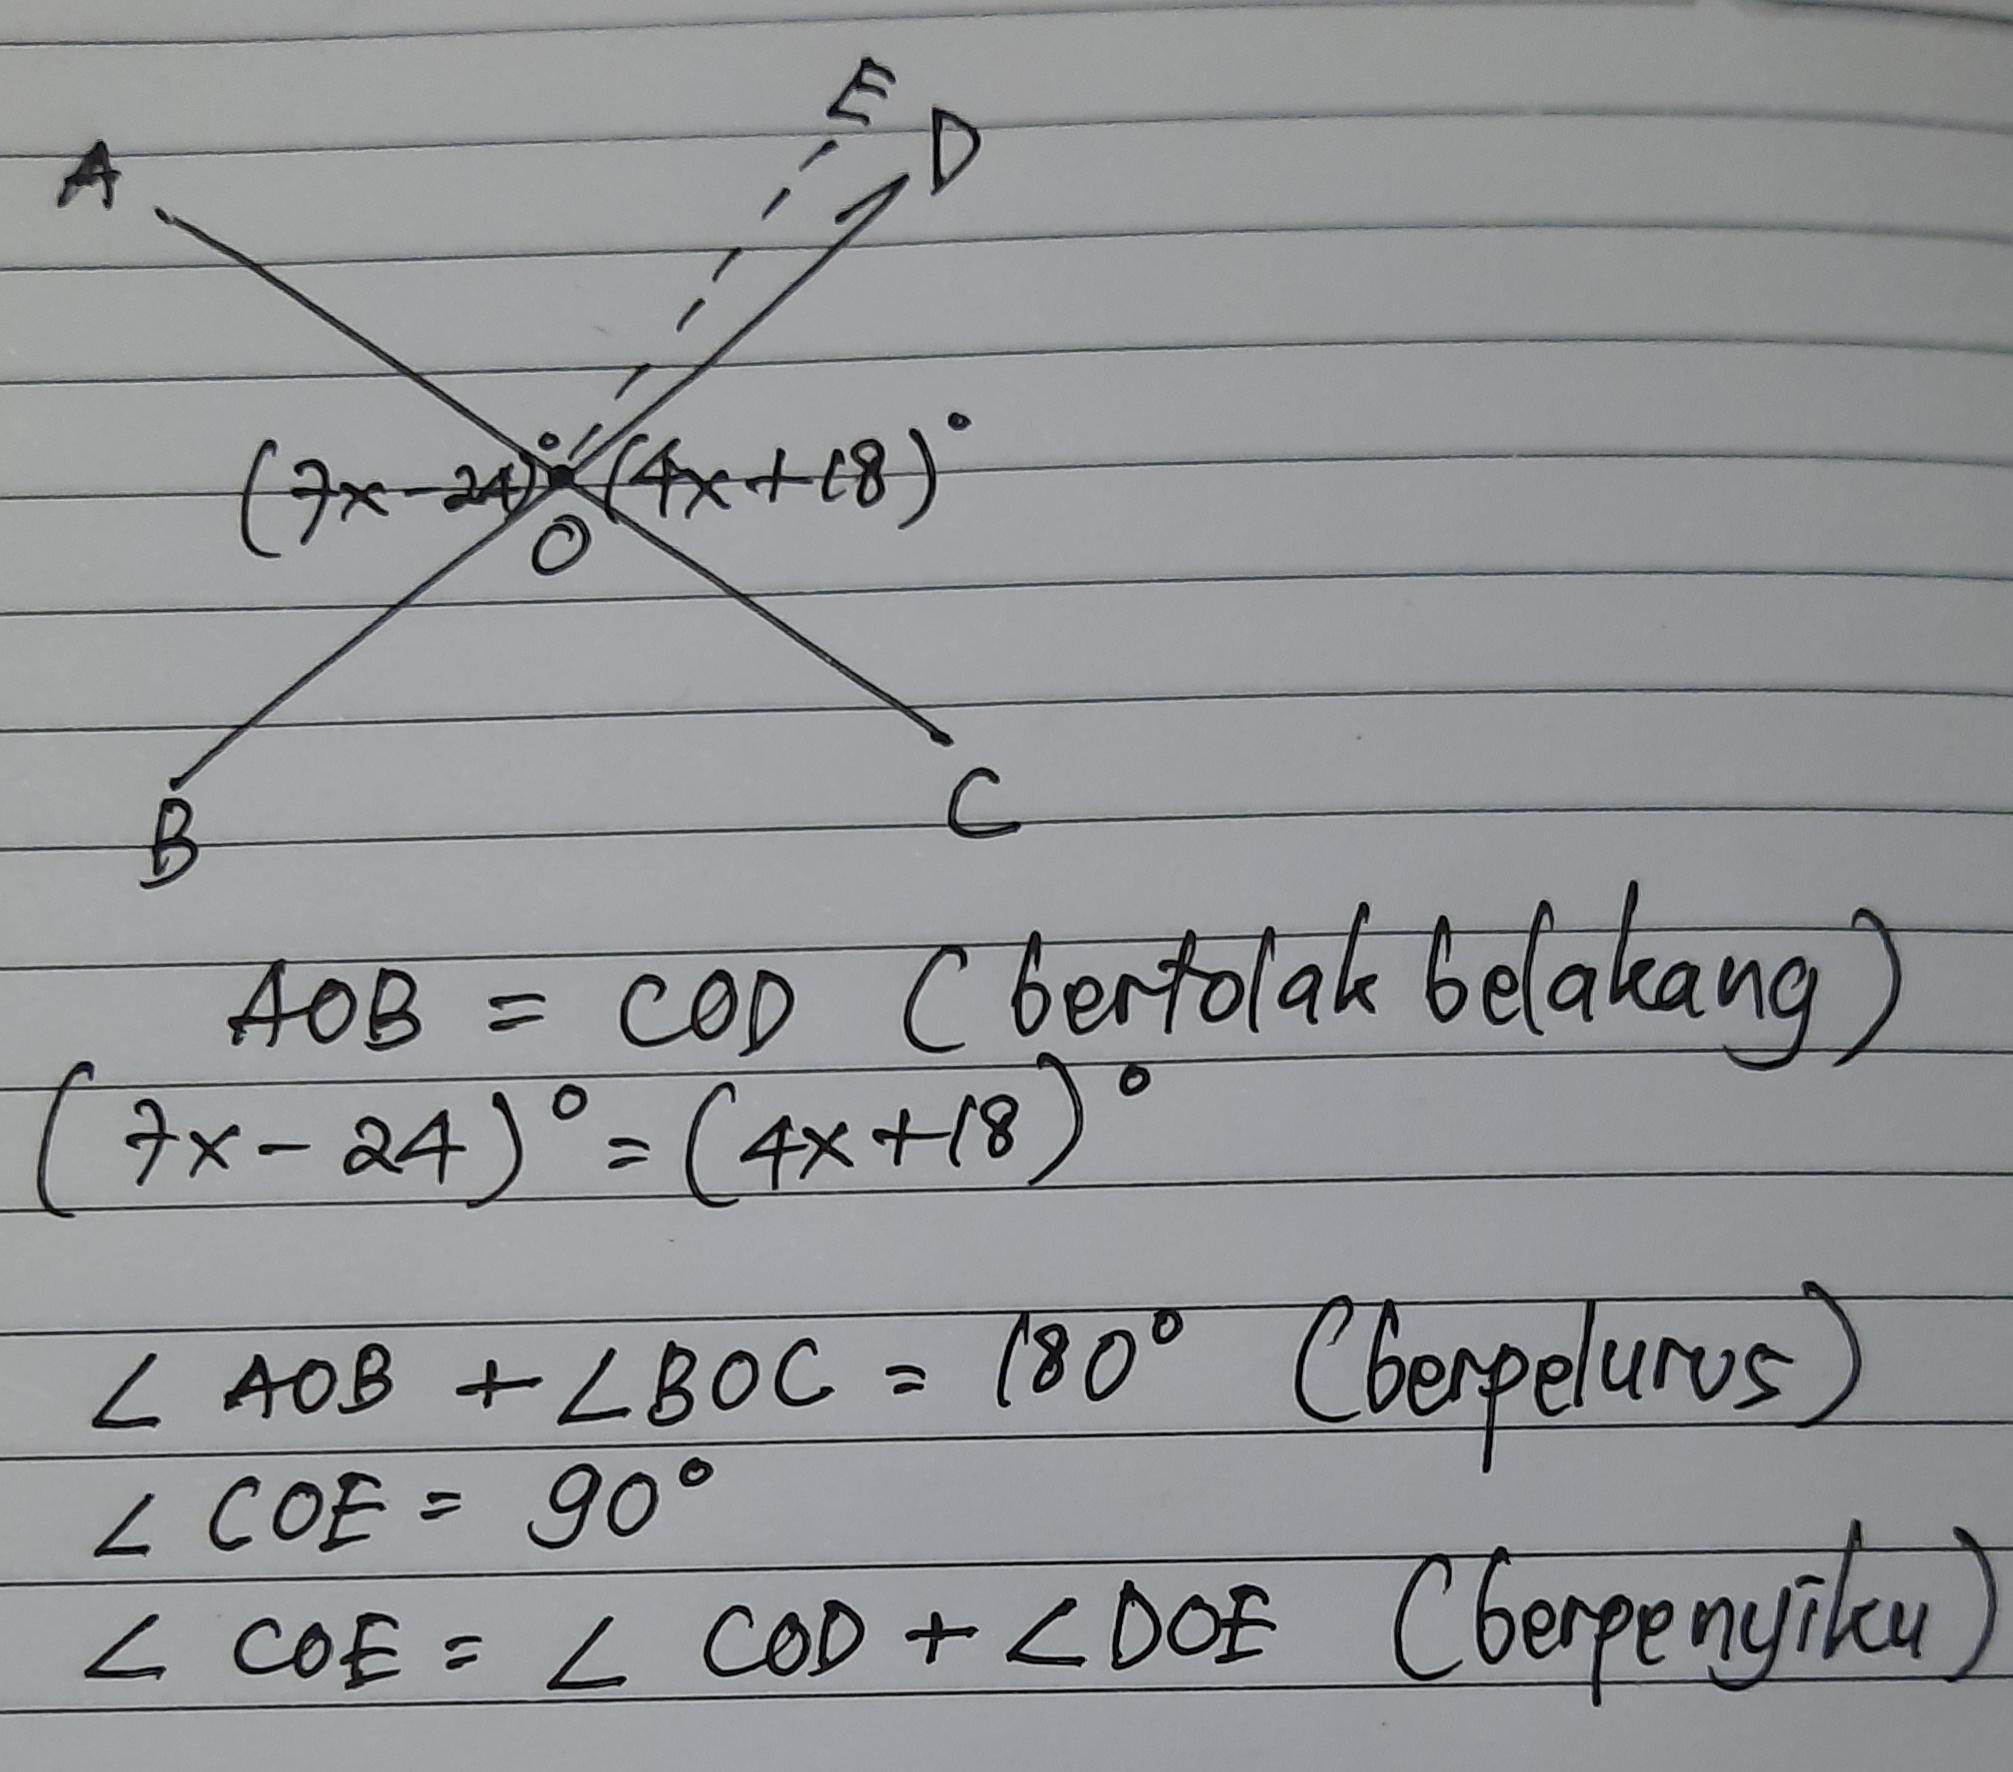 E
D
A
(7x-24)° (4x+18)°
O
B
C
AOB = COD (bertolak belakang)
(7x-24)° = (4x+18)°
∠ AOB + ∠BOC = 180° (berpelurus)
∠ COE = 90°
∠ COE = ∠ COD + ∠DOE (berpenyiku)